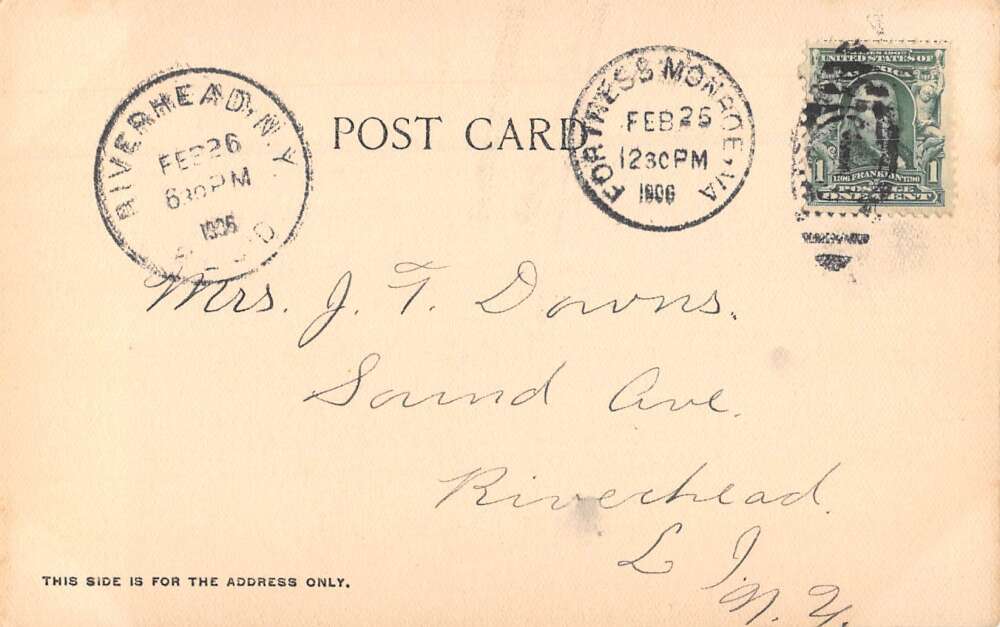 RIVERHEAD, N.Y.
FEB 26
630 PM
1906
REC'D
POST CARD
FORTRESS MONROE, VA
FEB 25
1230 PM
1906
UNITED STATES OF
AMERICA
1 1706 FRANKLIN 1790 1
POSTAGE
ONE CENT
Mrs. J. T. Downs.
Sound Ave.
Riverhead.
L I.
N. Y.
THIS SIDE IS FOR THE ADDRESS ONLY.